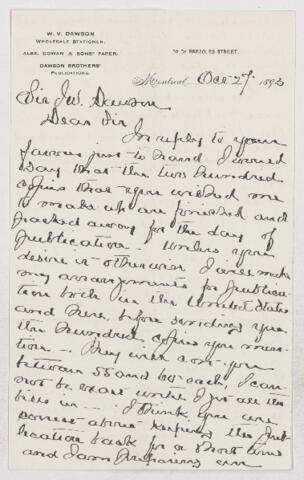 W. V. DAWSON
WHOLESALE STATIONER.
ALEX. COWAN & SONS' PAPER.
DAWSON BROTHERS'
PUBLICATIONS.
STREET.
Montreal, Oct 27 1893
Sir J W. Dawson
Dear Sir
In reply to your
favour just to hand I would
say that the two hundred
copies that you wished me
to make up are finished and
packed away for the day of
publication. Unless you
desire it otherwise I will make
my arrangements for publica-
tion both in the United States
and here, before sending you
the hundred copies you men-
tion — They will cost you
between 55 and 60c each, I can
not be exact until I get all the
bills in — I think you are
correct about keeping the pub-
lication back for a short time
and I am preparing our